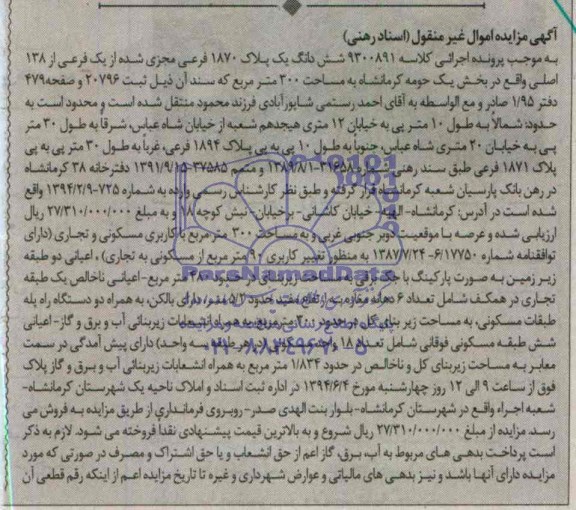 آگهی مزایده اموال غیر منقول (اسناد رهنی)
به موجب پرونده اجرائی کلاسه ۹۳۰۰۸۹۱ شش دانگ یک پلاک ۱۸۷۰ فرعی مجزی شده از یک فرعی از ۱۳۸
اصلی واقع در بخش یک حومه کرمانشاه به مساحت ۳۰۰ متر مربع که سند آن ذیل ثبت ۲۰۷۹۶ و صفحه ۴۷۹
دفتر ۱/۹۵ صادر و مع الواسطه به آقای احمد رستمی شاپورآبادی فرزند محمود منتقل شده است و محدود است به
حدود: شمالاً به طول ۱۰ متر پی به خیابان ۱۲ متری هیجدهم شعبه از خیابان شاه عباس، شرقا به طول ۳۰ متر
پی به خیابان ۲۰ متری شاه عباس، جنوبا به طول ۱۰ پی به پی پلاک ۱۸۹۴ فرعی، غربا به طول ۳۰ متر پی به پی
پلاک ۱۸۷۱ فرعی طبق سند رهنی ۳۱۶۵۸-۱۳۸۹/۸/۱ و متمم ۳۷۵۸۵-۱۳۹۱/۹/۱۵ دفترخانه ۳۸ کرمانشاه
در رهن بانک پارسیان شعبه کرمانشاه قرار گرفته و طبق نظر کارشناس رسمی وارده به شماره ۷۲۵-۱۳۹۴/۲/۹ واقع
شده است در آدرس: کرمانشاه- الهیه- خیابان کاشانی- برخیابان- نبش کوچه ۱۸ و به مبلغ ۲۷/۳۱۰/۰۰۰/۰۰۰ ریال
ارزیابی شده و عرصه با موقعیت دوبر جنوبی غربی و به مساحت ۳۰۰ متر مربع با کاربری مسکونی و تجاری (دارای
توافقنامه شماره ۶/۱۷۷۵۰-۱۳۸۷/۷/۲۴ به منظور تغییر کاربری ۹۰ متر مربع از مسکونی به تجاری)، اعیانی دو طبقه
زیرزمین به صورت پارکینگ با مساحت زیربنای در حدود متر مربع- اعیانی ناخالص یک طبقه
تجاری در همکف شامل تعداد ۶ دهانه مغازه به ارتفاع مفید حدود ۵/۲ متر، دارای بالکن، به همراه دو دستگاه راه پله
طبقات مسکونی، به مساحت زیربنای کل در حدود متر مربع به همراه انشعابات زیربنائی آب و برق و گاز- اعیانی
شش طبقه مسکونی فوقانی شامل تعداد ۱۸ واحد مسکونی (در هر طبقه سه واحد) دارای پیش آمدگی در سمت
معابر به مساحت زیربنای کل و ناخالص در حدود ۱/۸۳۴ متر مربع به همراه انشعابات زیربنائی آب و برق و گاز پلاک
فوق از ساعت ۹ الی ۱۲ روز چهارشنبه مورخ ۱۳۹۴/۶/۴ در اداره ثبت اسناد و املاک ناحیه یک شهرستان کرمانشاه-
شعبه اجراء واقع در شهرستان کرمانشاه- بلوار بنت الهدی صدر- روبروی فرمانداری از طریق مزایده به فروش می
رسد. مزایده از مبلغ ۲۷/۳۱۰/۰۰۰/۰۰۰ ریال شروع و به بالاترین قیمت پیشنهادی نقدا فروخته می شود. لازم به ذکر
است پرداخت بدهی های مربوط به آب، برق، گاز اعم از حق انشعاب و یا حق اشتراک و مصرف در صورتی که مورد
مزایده دارای آنها باشد و نیز بدهی های مالیاتی و عوارض شهرداری و غیره تا تاریخ مزایده اعم از اینکه رقم قطعی آن
ParsNamadData